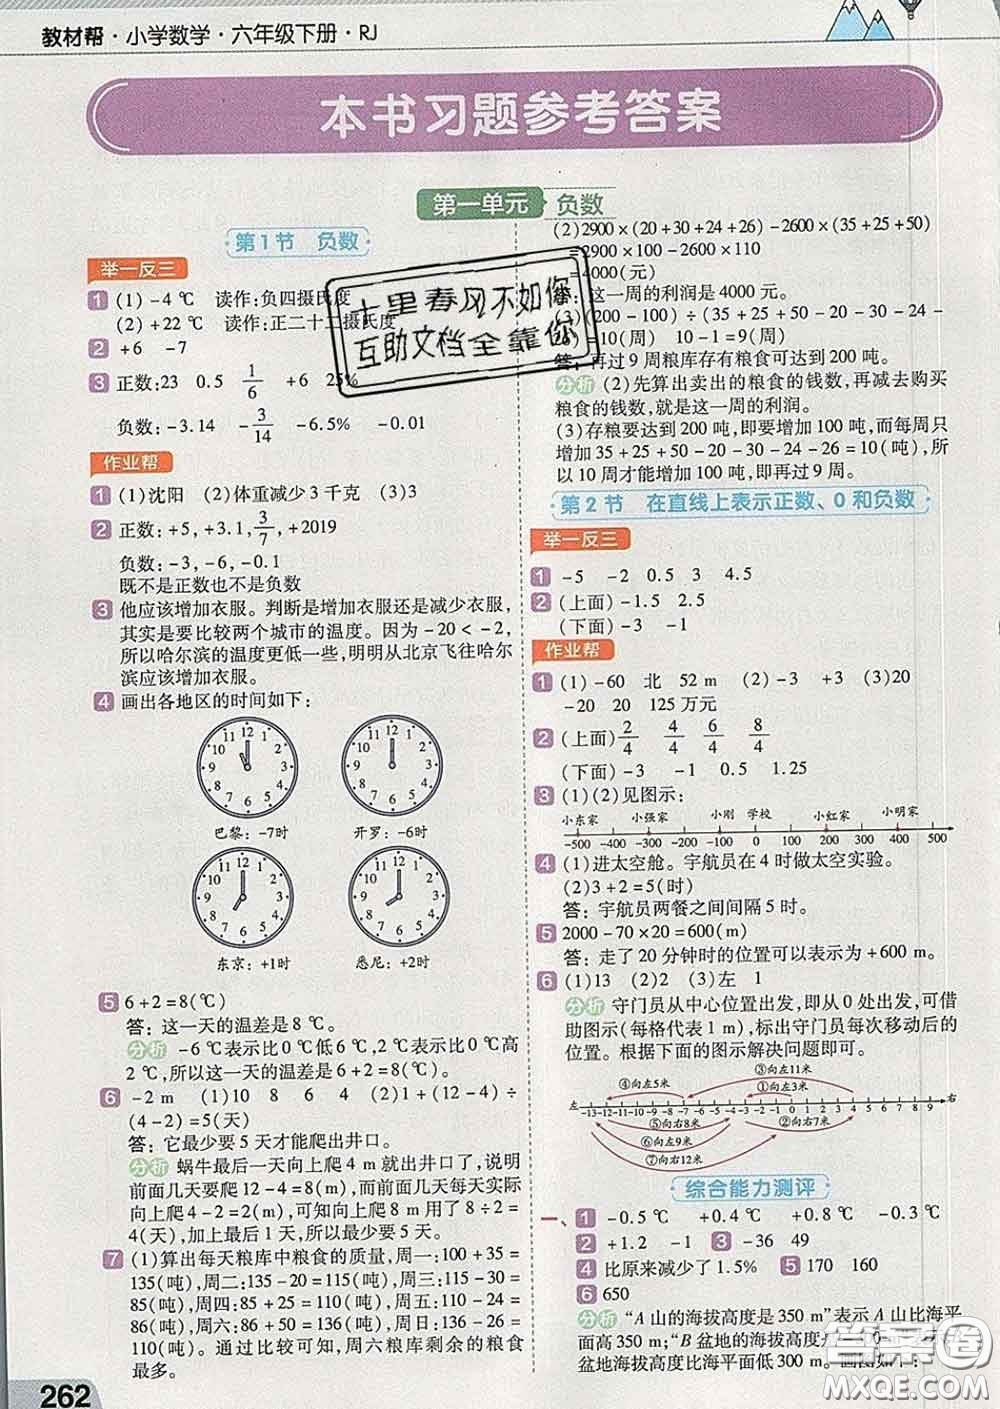 教材帮·小学数学·六年级下册·RJ
本书习题参考答案
第一单元 负数
第1节 负数
举一反三
1 (1)-4 ℃ 读作:负四摄氏度
(2)+22 ℃ 读作:正二十二摄氏度
2 +6 -7
3 正数:23 0.5 1/6 +6 25%
负数:-3.14 -3/14 -6.5% -0.01
作业帮
1 (1)沈阳 (2)体重减少3千克 (3)3
2 正数:+5,+3.1,3/7,+2019
负数:-3,-6,-0.1
既不是正数也不是负数
3 他应该增加衣服。判断是增加衣服还是减少衣服,
其实是要比较两个城市的温度。因为-20<-2,
所以哈尔滨的温度更低一些,明明从北京飞往哈尔
滨应该增加衣服。
4 画出各地区的时间如下:
12 1 2 3 4 5 6 7 8 9 10 11
12 1 2 3 4 5 6 7 8 9 10 11
巴黎:-7时 开罗:-6时
12 1 2 3 4 5 6 7 8 9 10 11
12 1 2 3 4 5 6 7 8 9 10 11
东京:+1时 悉尼:+2时
5 6+2=8(℃)
答:这一天的温差是8 ℃。
分析 -6 ℃表示比0 ℃低6 ℃,2 ℃表示比0 ℃高
2 ℃,所以这一天的温差是6+2=8(℃)。
6 -2 m (1)10 8 6 4 (2)1+(12-4)÷
(4-2)=5(天)
答:它最少要5天才能爬出井口。
分析 蜗牛最后一天向上爬4 m就出井口了,说明
前面几天要爬12-4=8(m),而前面几天每天实际
向上爬4-2=2(m),可知向上爬8 m用了8÷2=
4(天),加上最后1天,所以最少要5天。
7 (1)算出每天粮库中粮食的质量,周一:100+35=
135(吨),周二:135-20=115(吨),周三:115-30=
85(吨),周四:85+25=110(吨),周五:110-24=
86(吨),周六:86+50=136(吨),周日:136-26=
110(吨)。通过比较可知,周六粮库剩余的粮食
最多。
262
(2)2900×(20+30+24+26)-2600×(35+25+50)
=2900×100-2600×110
=4000(元)
答:这一周的利润是4000元。
(3)(200-100)÷(35+25+50-20-30-24-
26)=10(周) 10-1=9(周)
答:再过9周粮库存有粮食可达到200吨。
分析 (2)先算出卖出的粮食的钱数,再减去购买
粮食的钱数,就是这一周的利润。
(3)存粮要达到200吨,即要增加100吨,而每周只
增加35+25+50-20-30-24-26=10(吨),所
以10周才能增加100吨,即再过9周。
第2节 在直线上表示正数、0和负数
举一反三
1 -5 -2 0.5 3 4.5
2 (上面)-1.5 2.5
(下面)-3 -1
作业帮
1 (1)-60 北 52 m (2)-3 +3 (3)20
-20 20 125万元
2 (上面)2/4 4/4 6/4 8/4
(下面)-3 -1 0.5 1.25
3 (1)(2)见图示:
小东家 小强家 小刚 学校 小红家 小明家
-500 -400 -300 -200 -100 0 100 200 300 400 500
4 (1)进太空舱。宇航员在4时做太空实验。
(2)3+2=5(时)
答:宇航员两餐之间间隔5时。
5 2000-70×20=600(m)
答:走了20分钟时的位置可以表示为+600 m。
6 (1)13 (2)2 (3)左 1
分析 守门员从中心位置出发,即从0处出发,可借
助图示(每格代表1 m),标出守门员每次移动后的
位置。根据下面的图示解决问题即可。
③向左11米
④向左5米 ①向左3米
左 -13-12-11-10-9-8-7-6-5-4-3-2-1 0 1 2 3 4 5 6 7 8 9 右
⑤向右8米 ②向右7米
⑥向左9米
⑦向右12米
综合能力测评
一、1 -0.5 ℃ +0.4 ℃ +0.8 ℃ -0.3 ℃
2 +1.2 -1 3 -36 49
4 比原来减少了1.5% 5 170 160
6 650
分析 “A山的海拔高度是350 m”表示A山比海平
面高350 m;“B盆地的海拔高度
盆地的海拔高度比海平面低300 m。画图如下:
十里春风不如你
互助文档全靠你
答案圈
MXQE.COM